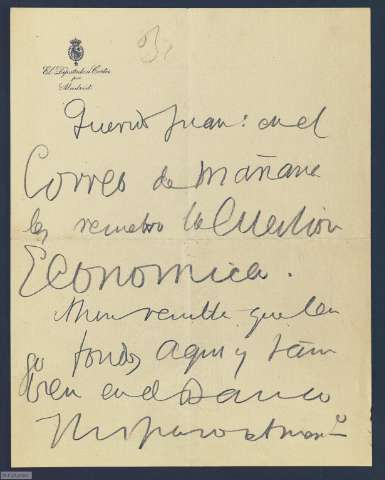 El Diputado a Cortes
por
Madrid
Querido Juan: en el
Correo de mañana
les remetro la Cuestion
Economica.
Ahora resulta que ten
go fondos aqui y tam
bien en el Banco
Hispano Amer.º